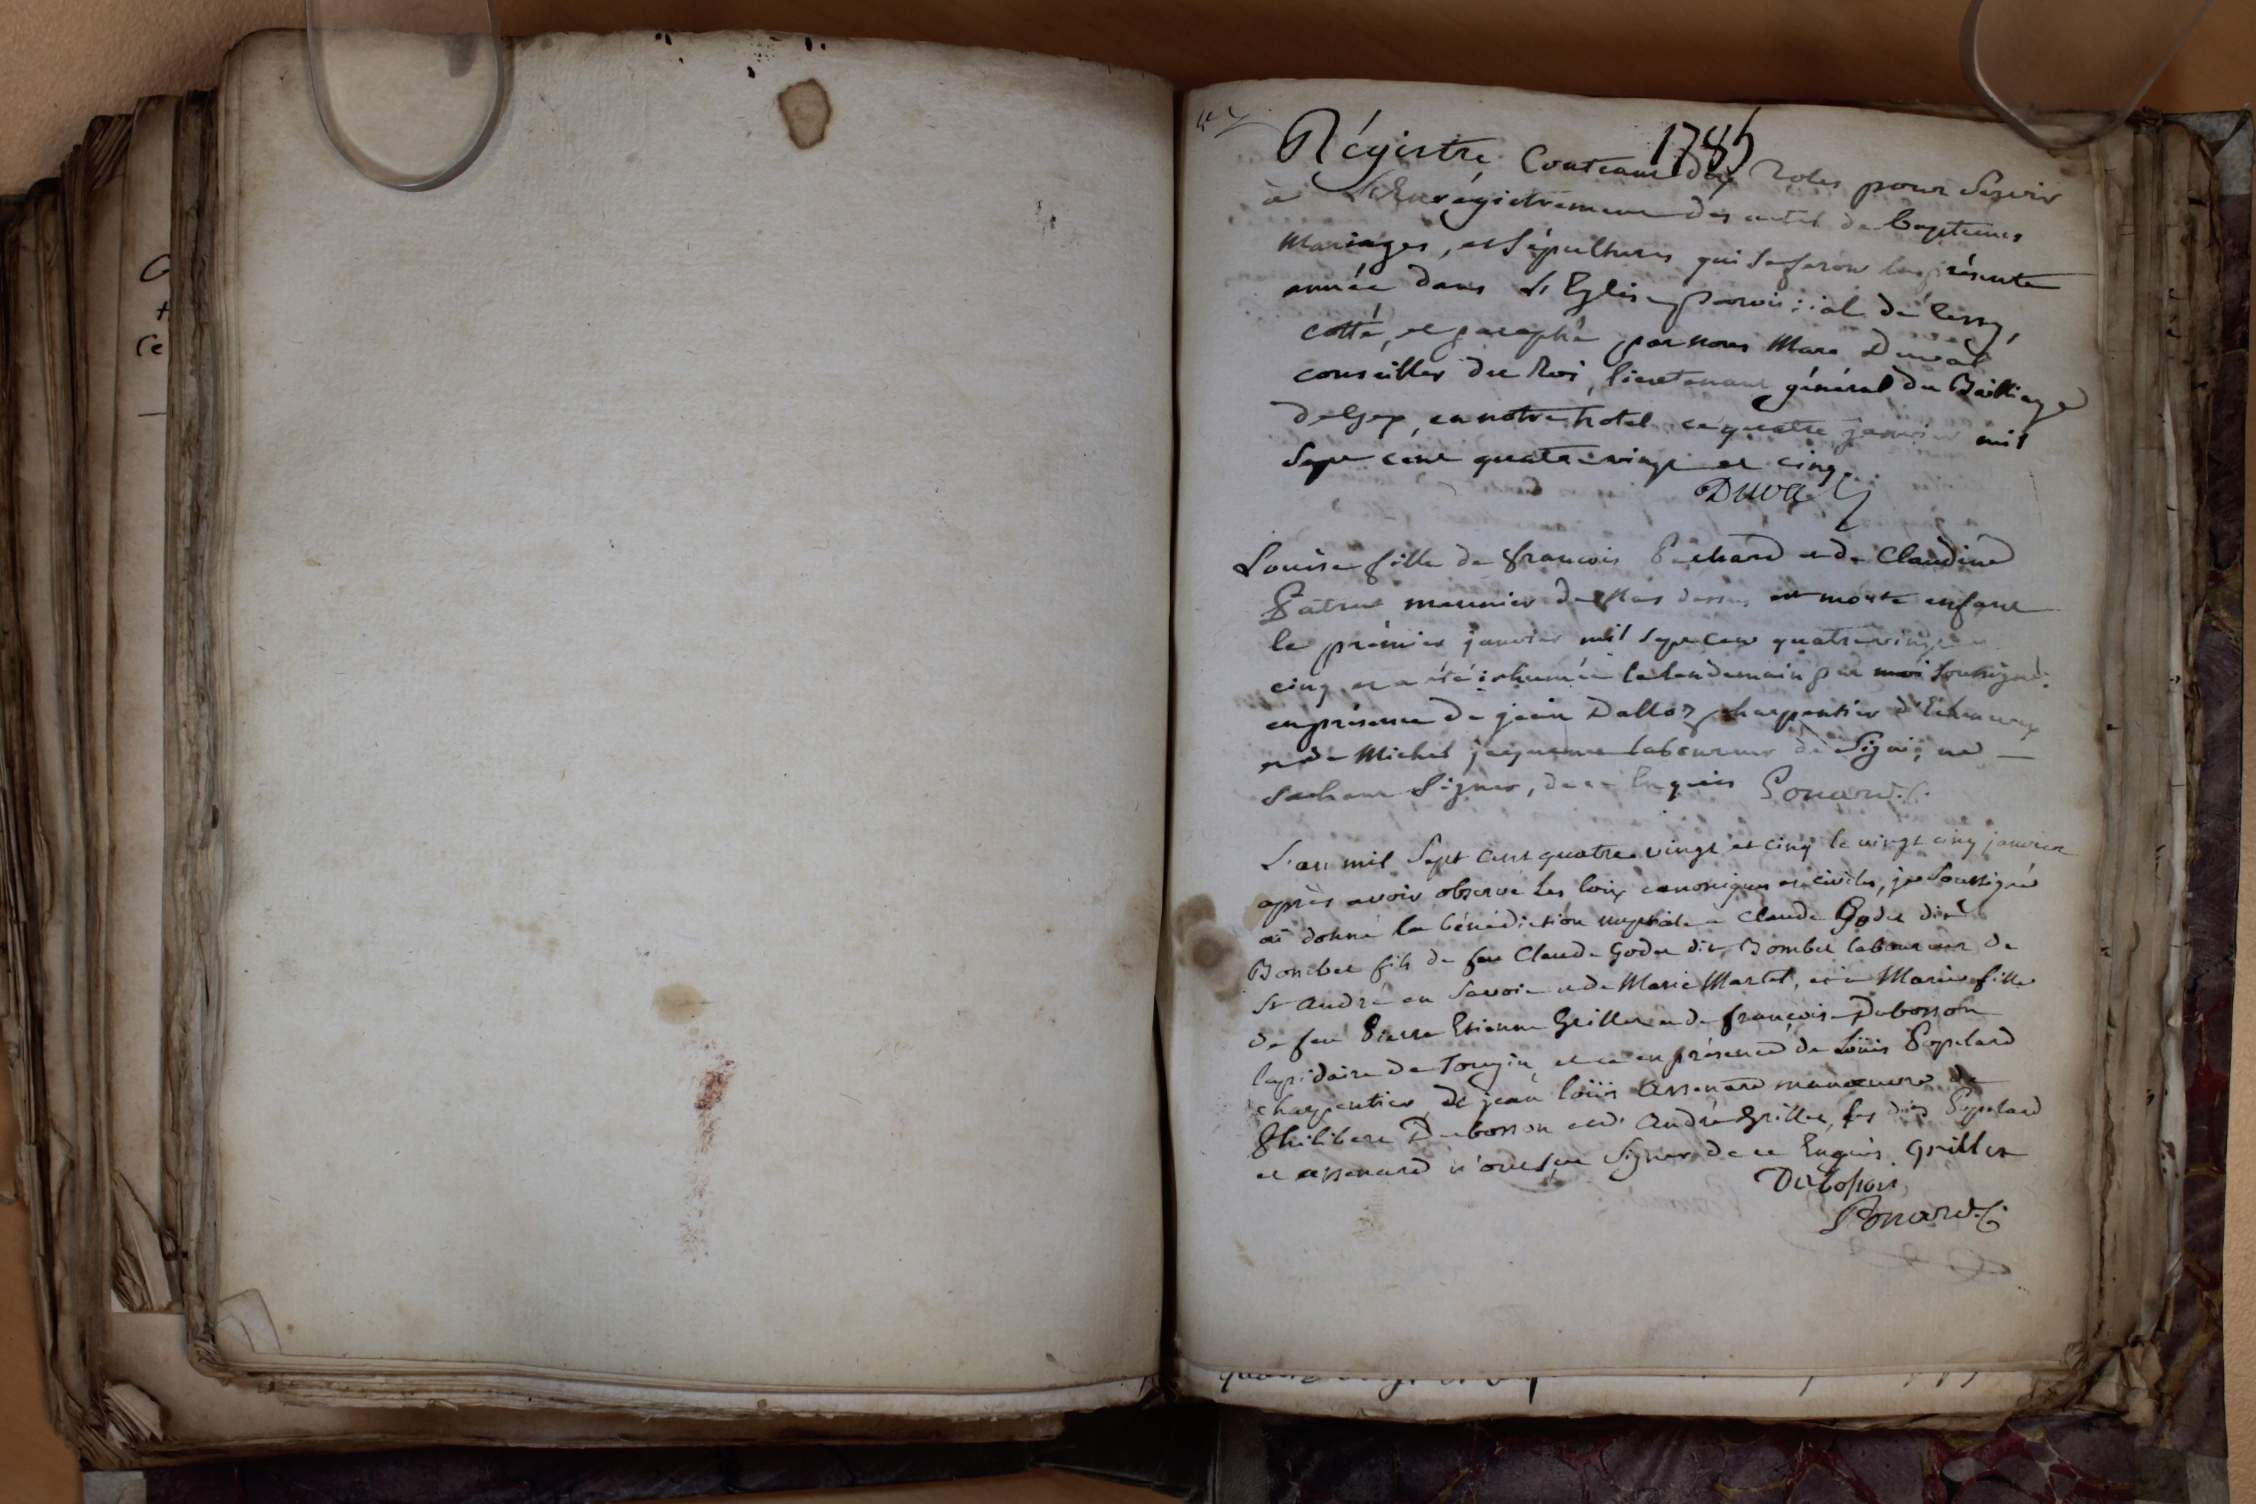 1785
Régistre Contenant dix roles pour Servir
à L'Enrégistrement des actes de Baptemes
Mariages, et Sépultures qui se feron la présente
année dans L'Eglise paroissial de Cessy,
cotté, et paraphé par nous Marc Duval
conseiller du Roi, lieutenant général du Bailliage
de Gex, en notre hotel ce quatre janvier mil
Sept cent quatre vingt et cinq.
Duval
Louise fille de françois Pechard et de Claudine
meunier de dessus est morte enfant
le prémier janvier mil Sept cent quatre vingt
cinq et a été inhumée le lendemain par moi soussigné.
en présence de jean Dalloz charpentier d'Echenevex
et de Michel jaquemet laboureur de ne
Sachant Signer, de ce Enquis Ponard. C.
L'an mil Sept cent quatre vingt et cinq le vingt cinq janvier
après avoir observé les loix canoniques et civiles, je Soussigné
ai donné la bénédiction nuptiale a Claude Godet dit
Bombet fils de feu Claude Godet dit Bombet laboureur de
St André en Savoie et de Marie Martel, et a Marie fille
de feu Pierre Etienne Grillet et de françoise Dubosson
lapidaire de Tougin, et ce en présence de Loüis Popelard
charpentier, de jean loüis Assenard manoeuvre de
Philibert Dubosson et d' André Grillet, les dits Popelard
et assenard n'ont sçu Signer de ce Enquis. Grillet
Dubosson
Ponard. C.